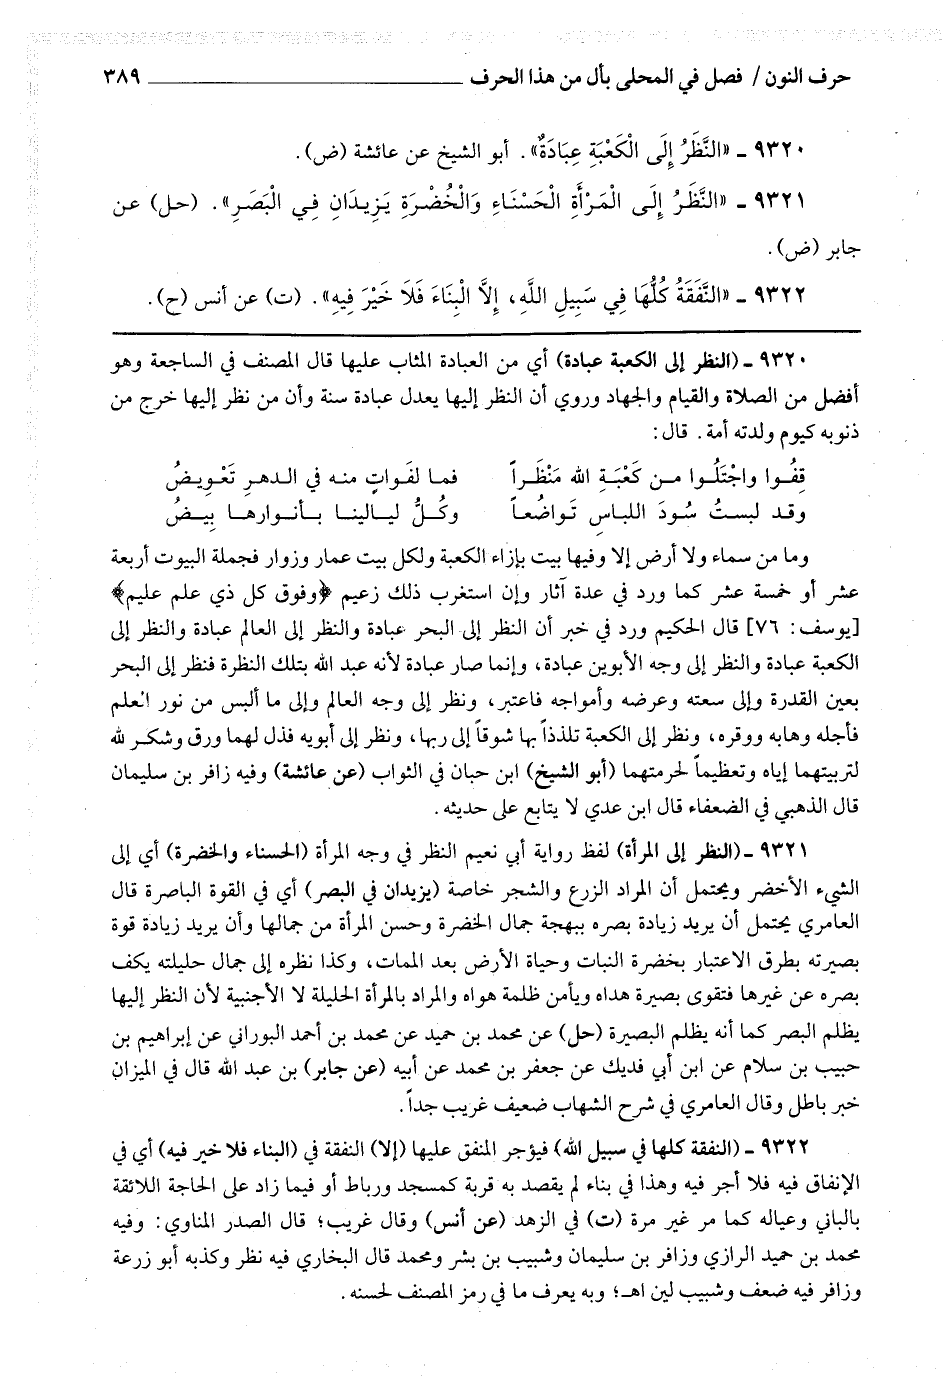 حرف النون / فصل في المحلى بأل من هذا الحرف ٣٨٩
٩٣٢٠ ـ «النَّظَرُ إِلَى الْكَعْبَةِ عِبَادَةٌ». أبو الشيخ عن عائشة (ض).
٩٣٢١ ـ «النَّظَرُ إِلَى الْمَرْأَةِ الْحَسْنَاءِ وَالْخُضْرَةِ يَزِيدَانِ فِي الْبَصَرِ». (حل) عن
جابر (ض).
٩٣٢٢ ـ «النَّفَقَةُ كُلُّهَا فِي سَبِيلِ اللَّهِ، إِلَّا الْبِنَاءَ فَلَا خَيْرَ فِيهِ». (ت) عن أنس (ح).
٩٣٢٠ ـ (النظر إلى الكعبة عبادة) أي من العبادة المثاب عليها قال المصنف في الساجعة وهو
أفضل من الصلاة والقيام والجهاد وروي أن النظر إليها يعدل عبادة سنة وأن من نظر إليها خرج من
ذنوبه كيوم ولدته أمة. قال:
قِفُوا واجْتَلُوا مـن كَعْبَةِ الله مَنْظَـراً فمـا لفَـواتٍ منـه في الـدهـرِ تَعْوِيـضُ
وقـد لبسـتُ سُودَ اللباسِ تَـواضُعـاً وكُـلُّ ليـالينـا بـأنـوارهـا بِيـضُ
وما من سماء ولا أرض إلا وفيها بيت بإزاء الكعبة ولكل بيت عمار وزوار فجملة البيوت أربعة
عشر أو خمسة عشر كما ورد في عدة آثار وإن استغرب ذلك زعيم ﴿وفوق كل ذي علم عليم﴾
[يوسف: ٧٦] قال الحكيم ورد في خبر أن النظر إلى البحر عبادة والنظر إلى العالم عبادة والنظر إلى
الكعبة عبادة والنظر إلى وجه الأبوين عبادة، وإنما صار عبادة لأنه عبد الله بتلك النظرة فنظر إلى البحر
بعين القدرة وإلى سعته وعرضه وأمواجه فاعتبر، ونظر إلى وجه العالم وإلى ما ألبس من نور العلم
فأجله وهابه ووقره، ونظر إلى الكعبة تلذذاً بها شوقاً إلى ربها، ونظر إلى أبويه فذل لهما ورق وشكر لله
لتربيتهما إياه وتعظيماً لحرمتهما (أبو الشيخ) ابن حبان في الثواب (عن عائشة) وفيه زافر بن سليمان
قال الذهبي في الضعفاء قال ابن عدي لا يتابع على حديثه.
٩٣٢١ ـ (النظر إلى المرأة) لفظ رواية أبي نعيم النظر في وجه المرأة (الحسناء والخضرة) أي إلى
الشيء الأخضر ويحتمل أن المراد الزرع والشجر خاصة (يزيدان في البصر) أي في القوة الباصرة قال
العامري يحتمل أن يريد زيادة بصره ببهجة جمال الخضرة وحسن المرأة من جمالها وأن يريد زيادة قوة
بصيرته بطرق الاعتبار بخضرة النبات وحياة الأرض بعد الممات، وكذا نظره إلى جمال حليلته يكف
بصره عن غيرها فتقوى بصيرة هداه ويأمن ظلمة هواه والمراد بالمرأة الحليلة لا الأجنبية لأن النظر إليها
يظلم البصر كما أنه يظلم البصيرة (حل) عن محمد بن حميد عن محمد بن أحمد البوراني عن إبراهيم بن
حبيب بن سلام عن ابن أبي فديك عن جعفر بن محمد عن أبيه (عن جابر) بن عبد الله قال في الميزان
خبر باطل وقال العامري في شرح الشهاب ضعيف غريب جداً.
٩٣٢٢ ـ (النفقة كلها في سبيل الله) فيؤجر المنفق عليها (إلا) النفقة في (البناء فلا خير فيه) أي في
الإنفاق فيه فلا أجر فيه وهذا في بناء لم يقصد به قربة كمسجد ورباط أو فيما زاد على الحاجة اللائقة
بالباني وعياله كما مر غير مرة (ت) في الزهد (عن أنس) وقال غريب؛ قال الصدر المناوي: وفيه
محمد بن حميد الرازي وزافر بن سليمان وشبيب بن بشر ومحمد قال البخاري فيه نظر وكذبه أبو زرعة
وزافر فيه ضعف وشبيب لين اهـ؛ وبه يعرف ما في رمز المصنف لحسنه.